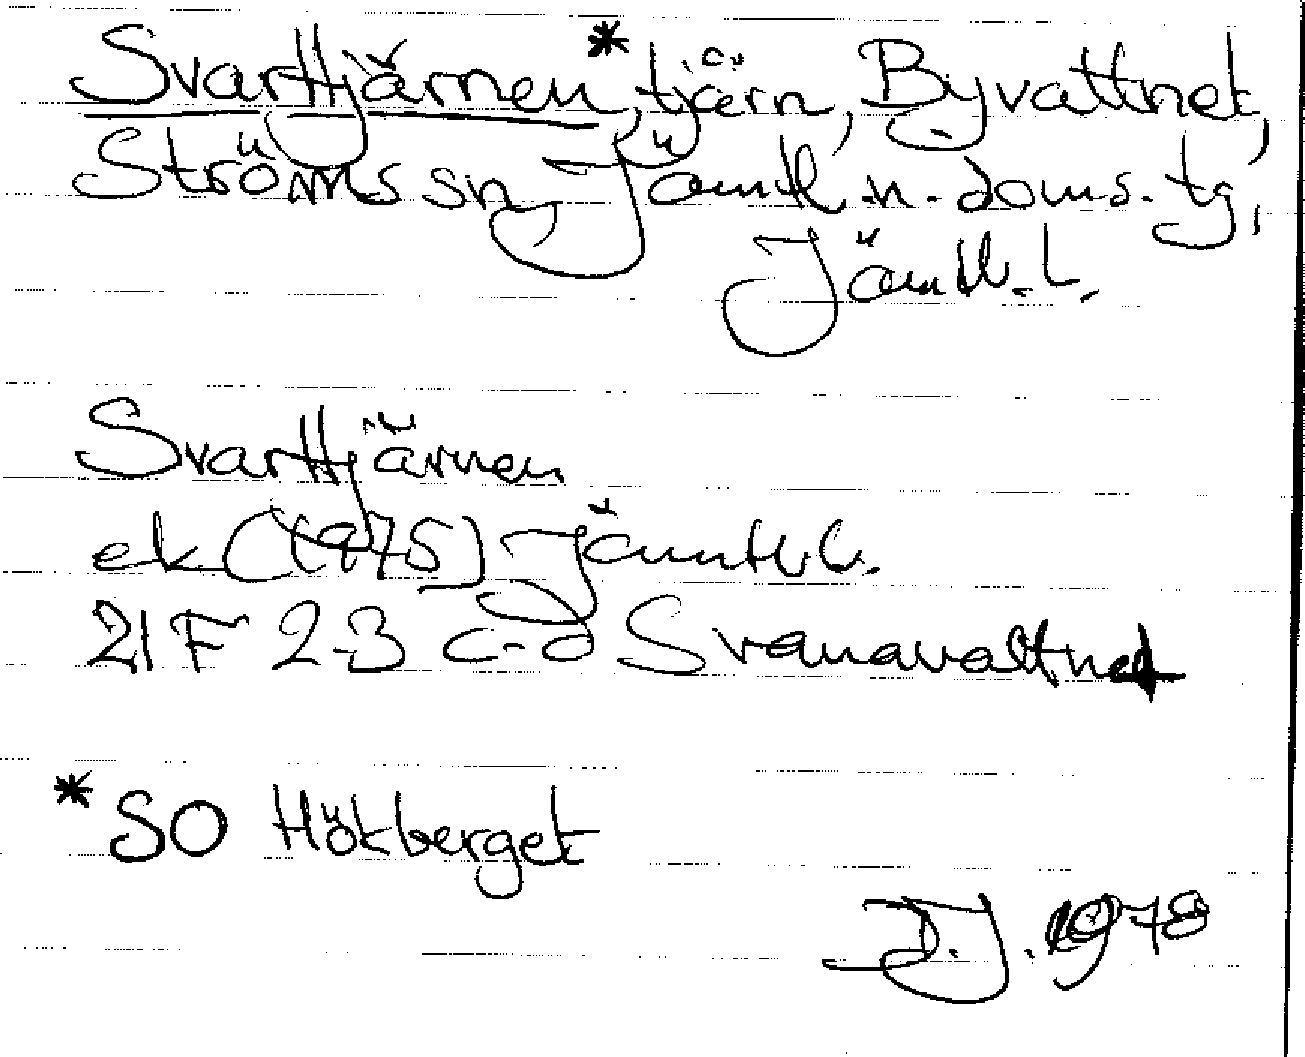 Svarttjärnen*, tjärn, Byvattnet,
Ströms sn, Jämtl. n. doms. tg,
Jämtl. l.
Svarttjärnen
ek (1975) Jämtl. l.
21 F 2-3 c-d Svanavattnet
* SO Hökberget
D.J. 1978